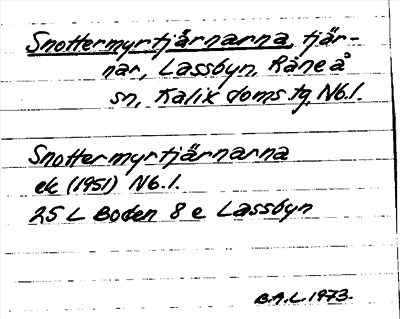 Snottermyrtjärnarna, tjär-
nar, Lassbyn, Råneå
sn, Kalix doms.tg, Nb.l.
Snottermyrtjärnarna
ek (1951) Nb.l.
25 L Boden 8 e Lassbyn
B.A.L. 1973.